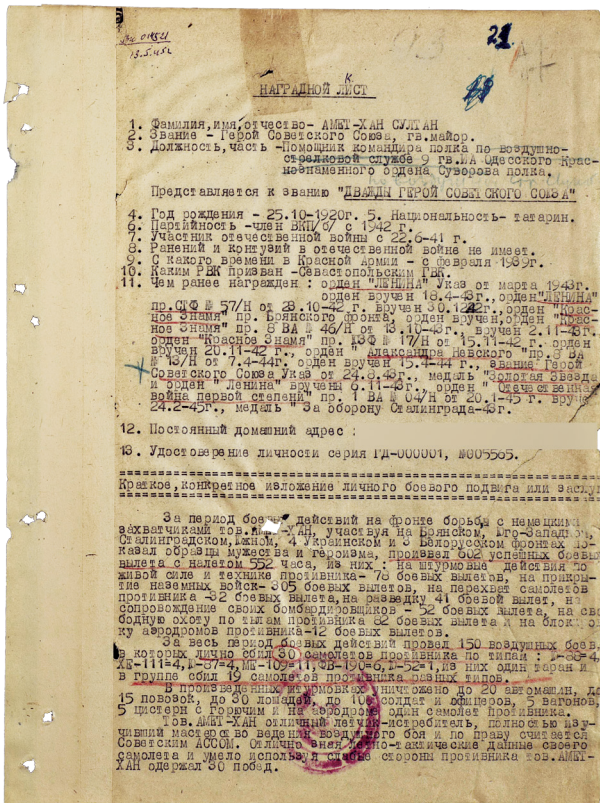 13.5.45г
21
НАГРАДНОЙ ЛИСТ
1. Фамилия,имя,отчество- АМЕТ-ХАН СУЛТАН
2. Звание - Герой Советского Союза, гв.майор.
3. Должность,часть -Помощник командира полка по воздушно-
стрелковой службе 9 гв.ИА Одесского Крас-
нознаменного ордена Суворова полка.
Представляется к званию "ДВАЖДЫ ГЕРОЙ СОВЕТСКОГО СОЮЗА"
4. Год рождения - 25.10-1920г. 5. Национальность- татарин.
6. Партийность -член ВКП/б/ с 1942 г.
7. Участник отечественной войны с 22.6-41 г.
8. Ранений и контузий в отечественной войне не имеет.
9. С какого времени в Красной Армии - с февраля 1939г.
10. Каким РВК призван -Севастопольским ГВК.
11. Чем ранее награжден : орден "ЛЕНИНА" Указ от марта 1943г.
орден вручен 18.4-43г.,орден"ЛЕНИНА"
пр.СТФ № 57/Н от 23.10-42 г. вручен 30.1242г.,орден "Крас-
ное Знамя" пр. Брянского фронта, орден вручен,орден "Крас-
ное Знамя" пр. 8 ВА № 46/Н от 13.10-43г., вручен 2.11-43г.
орден "Красное Знамя" пр. ЮЗФ № 17/Н от 15.11-42 г. орден
вручен 20.11-42 г., орден " Александра Невского "пр. 8 ВА
№ 13/Н от 7.4-44г. орден вручен 15.4-44 г., звание Герой
Советского Союза Указ от 24.8.43г., медаль "Золотая Звезда
и орден " Ленина" вручены 6.11-43г., орден " Отечественна
война первой степени" пр. 1 ВА № 04/Н от 20.1-45 г. вруче
24.2-45г., медаль " За оборону Сталинграда-43г.
12. Постоянный домашний адрес :
13. Удостоверение личности серия ГД-000001, №005565.
Краткое,конкретное изложение личного боевого подвига или заслу
За период боевых действий на фронте борьбы с немецкими
захватчиками тов.АМЕТ-ХАН, участвуя на Брянском, Юго-Западном,
Сталинградском, Южном, 4 Украинском и 3 Белорусском фронтах по-
казал образцы мужества и героизма, произвел 602 успешных боевы
вылета с налетом 552 часа, из них : на штурмовые действия по
живой силе и технике противника- 78 боевых вылетов, на прикры-
тие наземных войск- 305 боевых вылетов, на перехват самолетов
противника -32 боевых вылета,на разведку 41 боевой вылет, на
сопровождение своих бомбардировщиков - 52 боевых вылета, на сво
бодную охоту по тылам противника 82 боевых вылета и на блокиров
ку аэродромов противника-12 боевых вылетов.
За весь период боевых действий провел 150 воздушных боев,
в которых лично сбил 30 самолетов противника по типам : Ю-88=4,
ХЕ-111=4,Ю-87=4, МЕ-109=11,ФВ-190=6,Ю-52=1,из них один таран и
в группе сбил 19 самолетов противника разных типов.
В произведенных штурмовках уничтожено до 20 автомашин, до
15 повозок, до 30 лошадей, до 10 солдат и офицеров, 5 вагонов,
5 цистерн с горючим и на аэродроме один самолет противника.
Тов.АМЕТ-ХАН отличный летчик-истребитель, полностью изу-
чивший мастерство ведения воздушного боя и по праву считается
Советским АССОМ. Отлично зная летно-тактические данные своего
самолета и умело используя слабые стороны противника тов.АМЕТ-
ХАН одержал 30 побед.